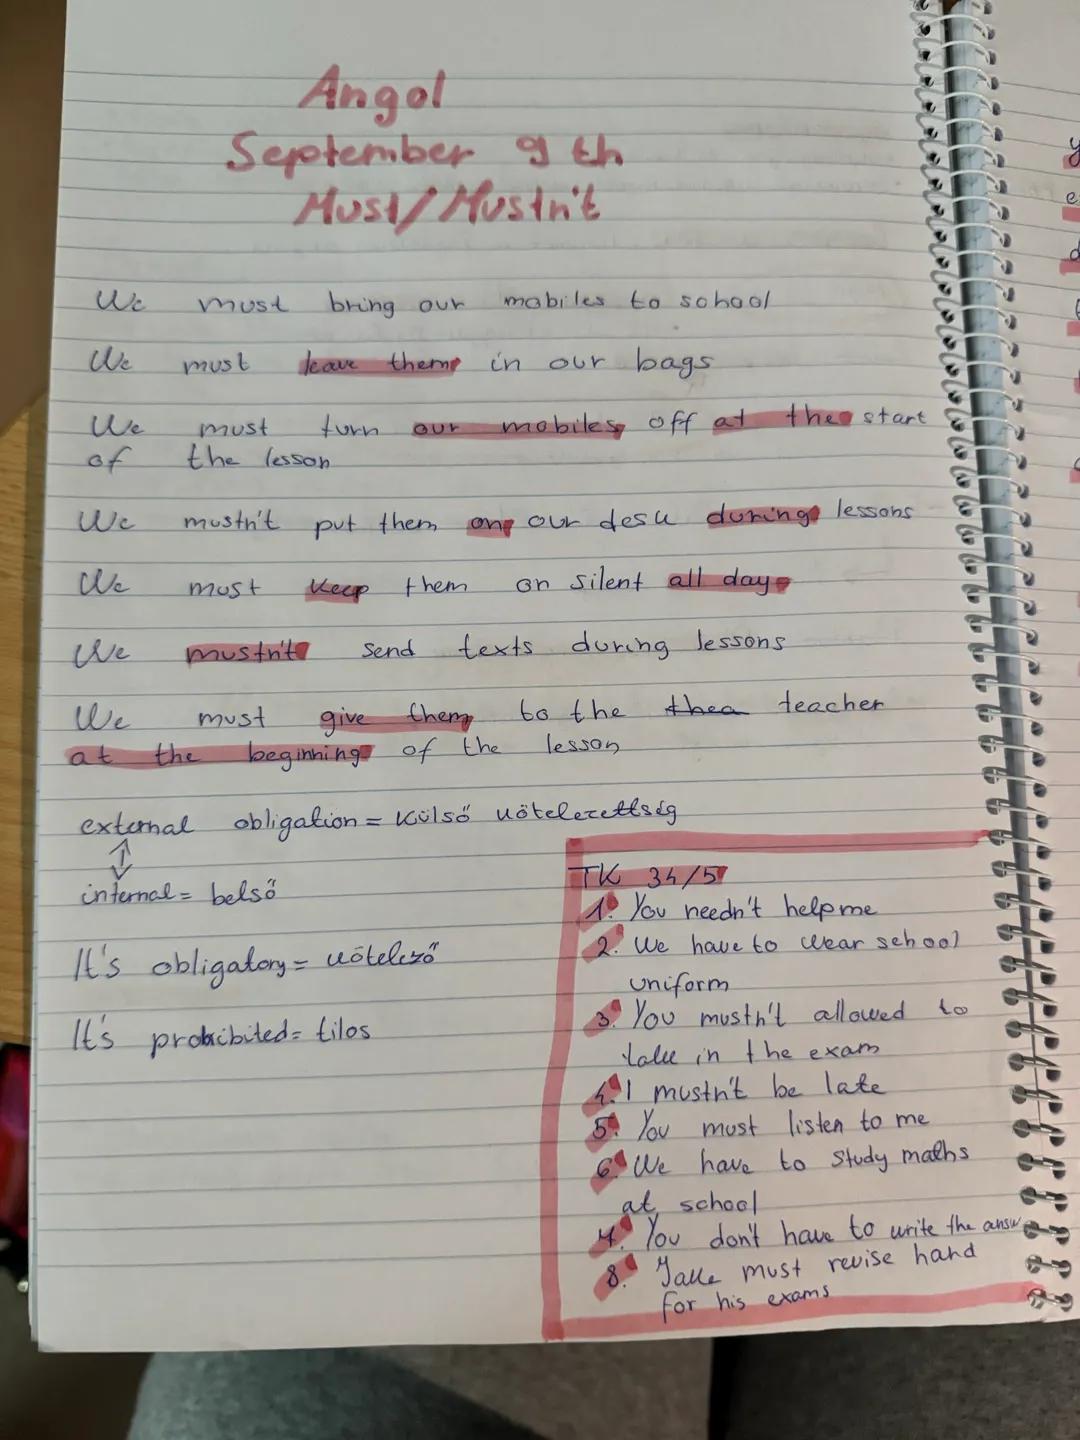 Angol
September 9th
Must/Mustn't
We must bring our mobiles to school
We must leave them in our bags
We must turn our mobiles off at the start
of the lesson
We mustn't put them on our desk during lessons
We must keep them on silent all day
We mustn't send texts during lessons
We must give them to the thea teacher
at the beginning of the lesson
external obligation = külső kötelezettség
↕
internal = belső
It's obligatory = kötelező
It's prohibited = tilos
TK 34/5
1. You needn't help me
2. We have to wear school
uniform
3. You mustn't allowed to
take in the exam
4. I mustn't be late
5. You must listen to me
6. We have to study maths
at school
7. You don't have to write the answ
8. Jake must revise hard
for his exams